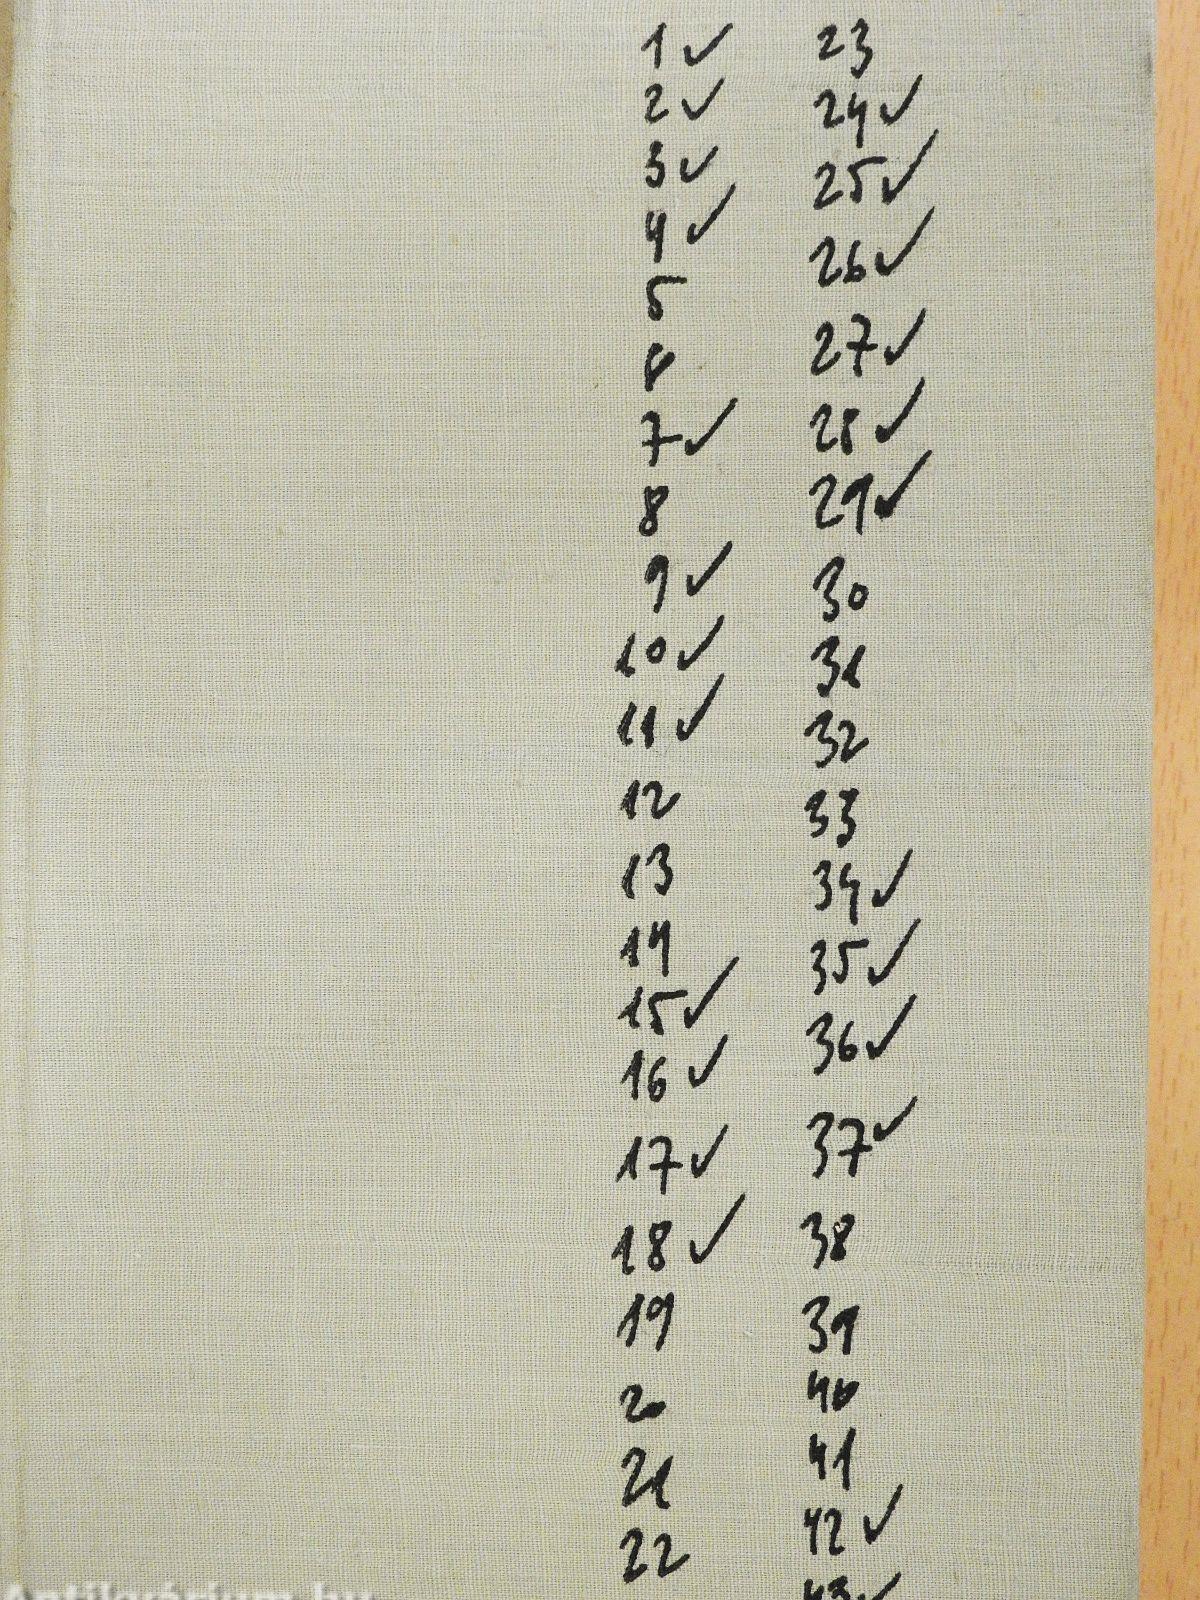 1 ✓
2 ✓
3 ✓
4 ✓
5
8
7 ✓
8
9 ✓
10 ✓
11 ✓
12
13
14
15 ✓
16 ✓
17 ✓
18 ✓
19
20
21
22
23
24 ✓
25 ✓
26 ✓
27 ✓
28 ✓
29 ✓
30
31
32
33
34 ✓
35 ✓
36 ✓
37 ✓
38
39
40
41
42 ✓
43 ✓
Antikvárium.hu